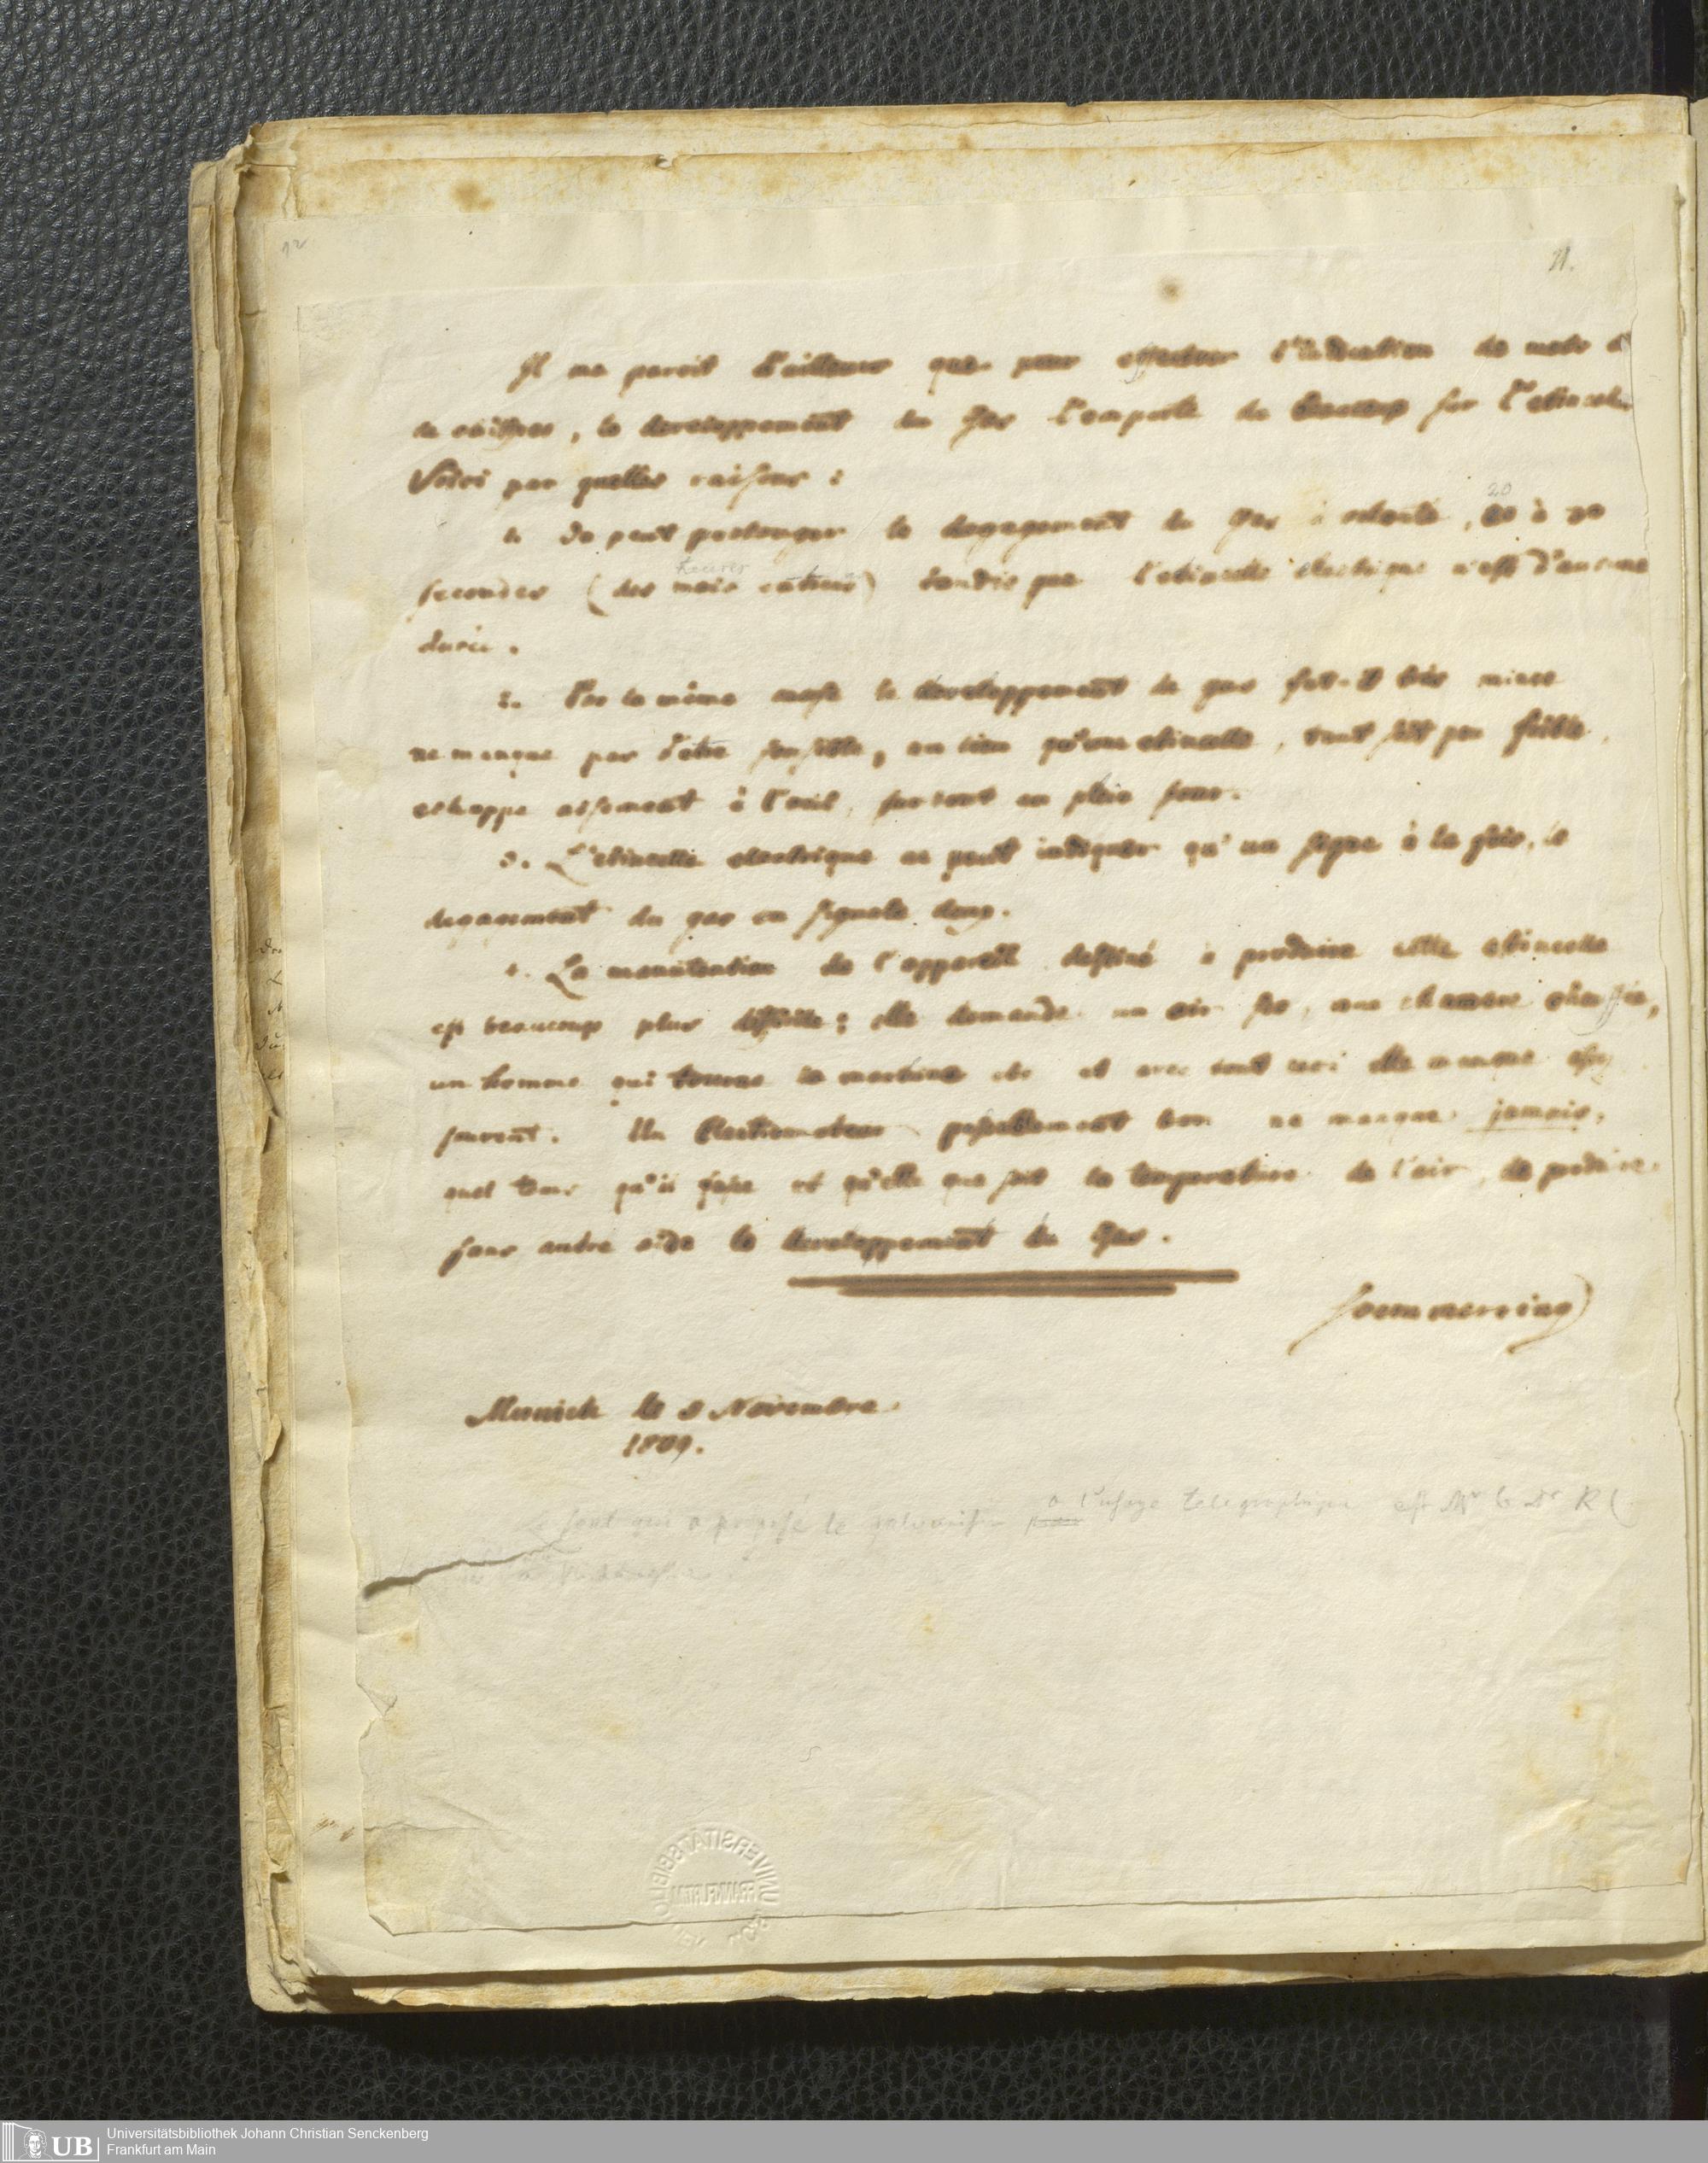 12
11.
Il me paroit d'ailleurs que pour effectuer l'indication de mots et
de chiffres, le developpement du Gas l'emporte de beaucoup sur l'etincelle
Voici par quelles raisons :
1. On peut prolonger le degagement du Gas à volonté, 20 à 30
20
heures
secondes (des mois entiers) tandis que l'etincelle electrique n'est d'aucune
durée.
2. Par la même le developpement de gas fut-il très mince
ne manque pas d'etre sensible, au lieu qu'une etincelle, tant soit peu foible,
echappe aisement à l'oeil, surtout en plein jour.
3. L'etincelle electrique ne peut indiquer qu'un signe à la fois, le
degagement du gas en signale deux.
4. La manutention de l'appareil destiné à produire cette etincelle
est beaucoup plus difficile; elle demande un air sec, une chambre chauffée,
un homme qui tourne la machine etc et avec tout ceci elle manque
souvent. Un Electromoteur passablement bon ne manque jamais,
quel tems qu'il fasse et qu'elle que soit la temperature de l'air, de produire
sans autre aide le developpement du Gas.
Soemmerring
Munich le Novembre
1809.
seul qui a proposé le galvanisme pour a l'usage telegraphique est Mr le Dr
UNIVERSITÄTSBIBLIOTHEK
FRANKFURT
UB
Universitätsbibliothek Johann Christian Senckenberg
Frankfurt am Main